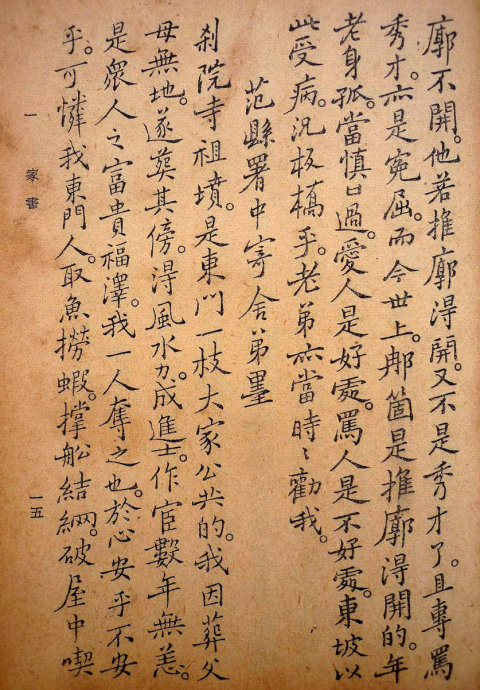 廓不開。他若推廓得開。又不是秀才了。且專罵
秀才。亦是寃屈。而今世上。那箇是推廓得開的。年
老身孤。當慎口過。愛人是好處。罵人是不好處。東坡以
此受病。況板橋乎。老弟亦當時〻勸我。
范縣署中寄舍弟墨
刹院寺祖墳。是東門一枝大家公共的。我因葬父
母無地。遂葬其傍。得風水力。成進士。作宦數年無恙。
是衆人之富貴福澤。我一人奪之也。於心安乎不安
乎。可憐我東門人。取魚撈蝦。撐船結網。破屋中喫
一 家書 一五